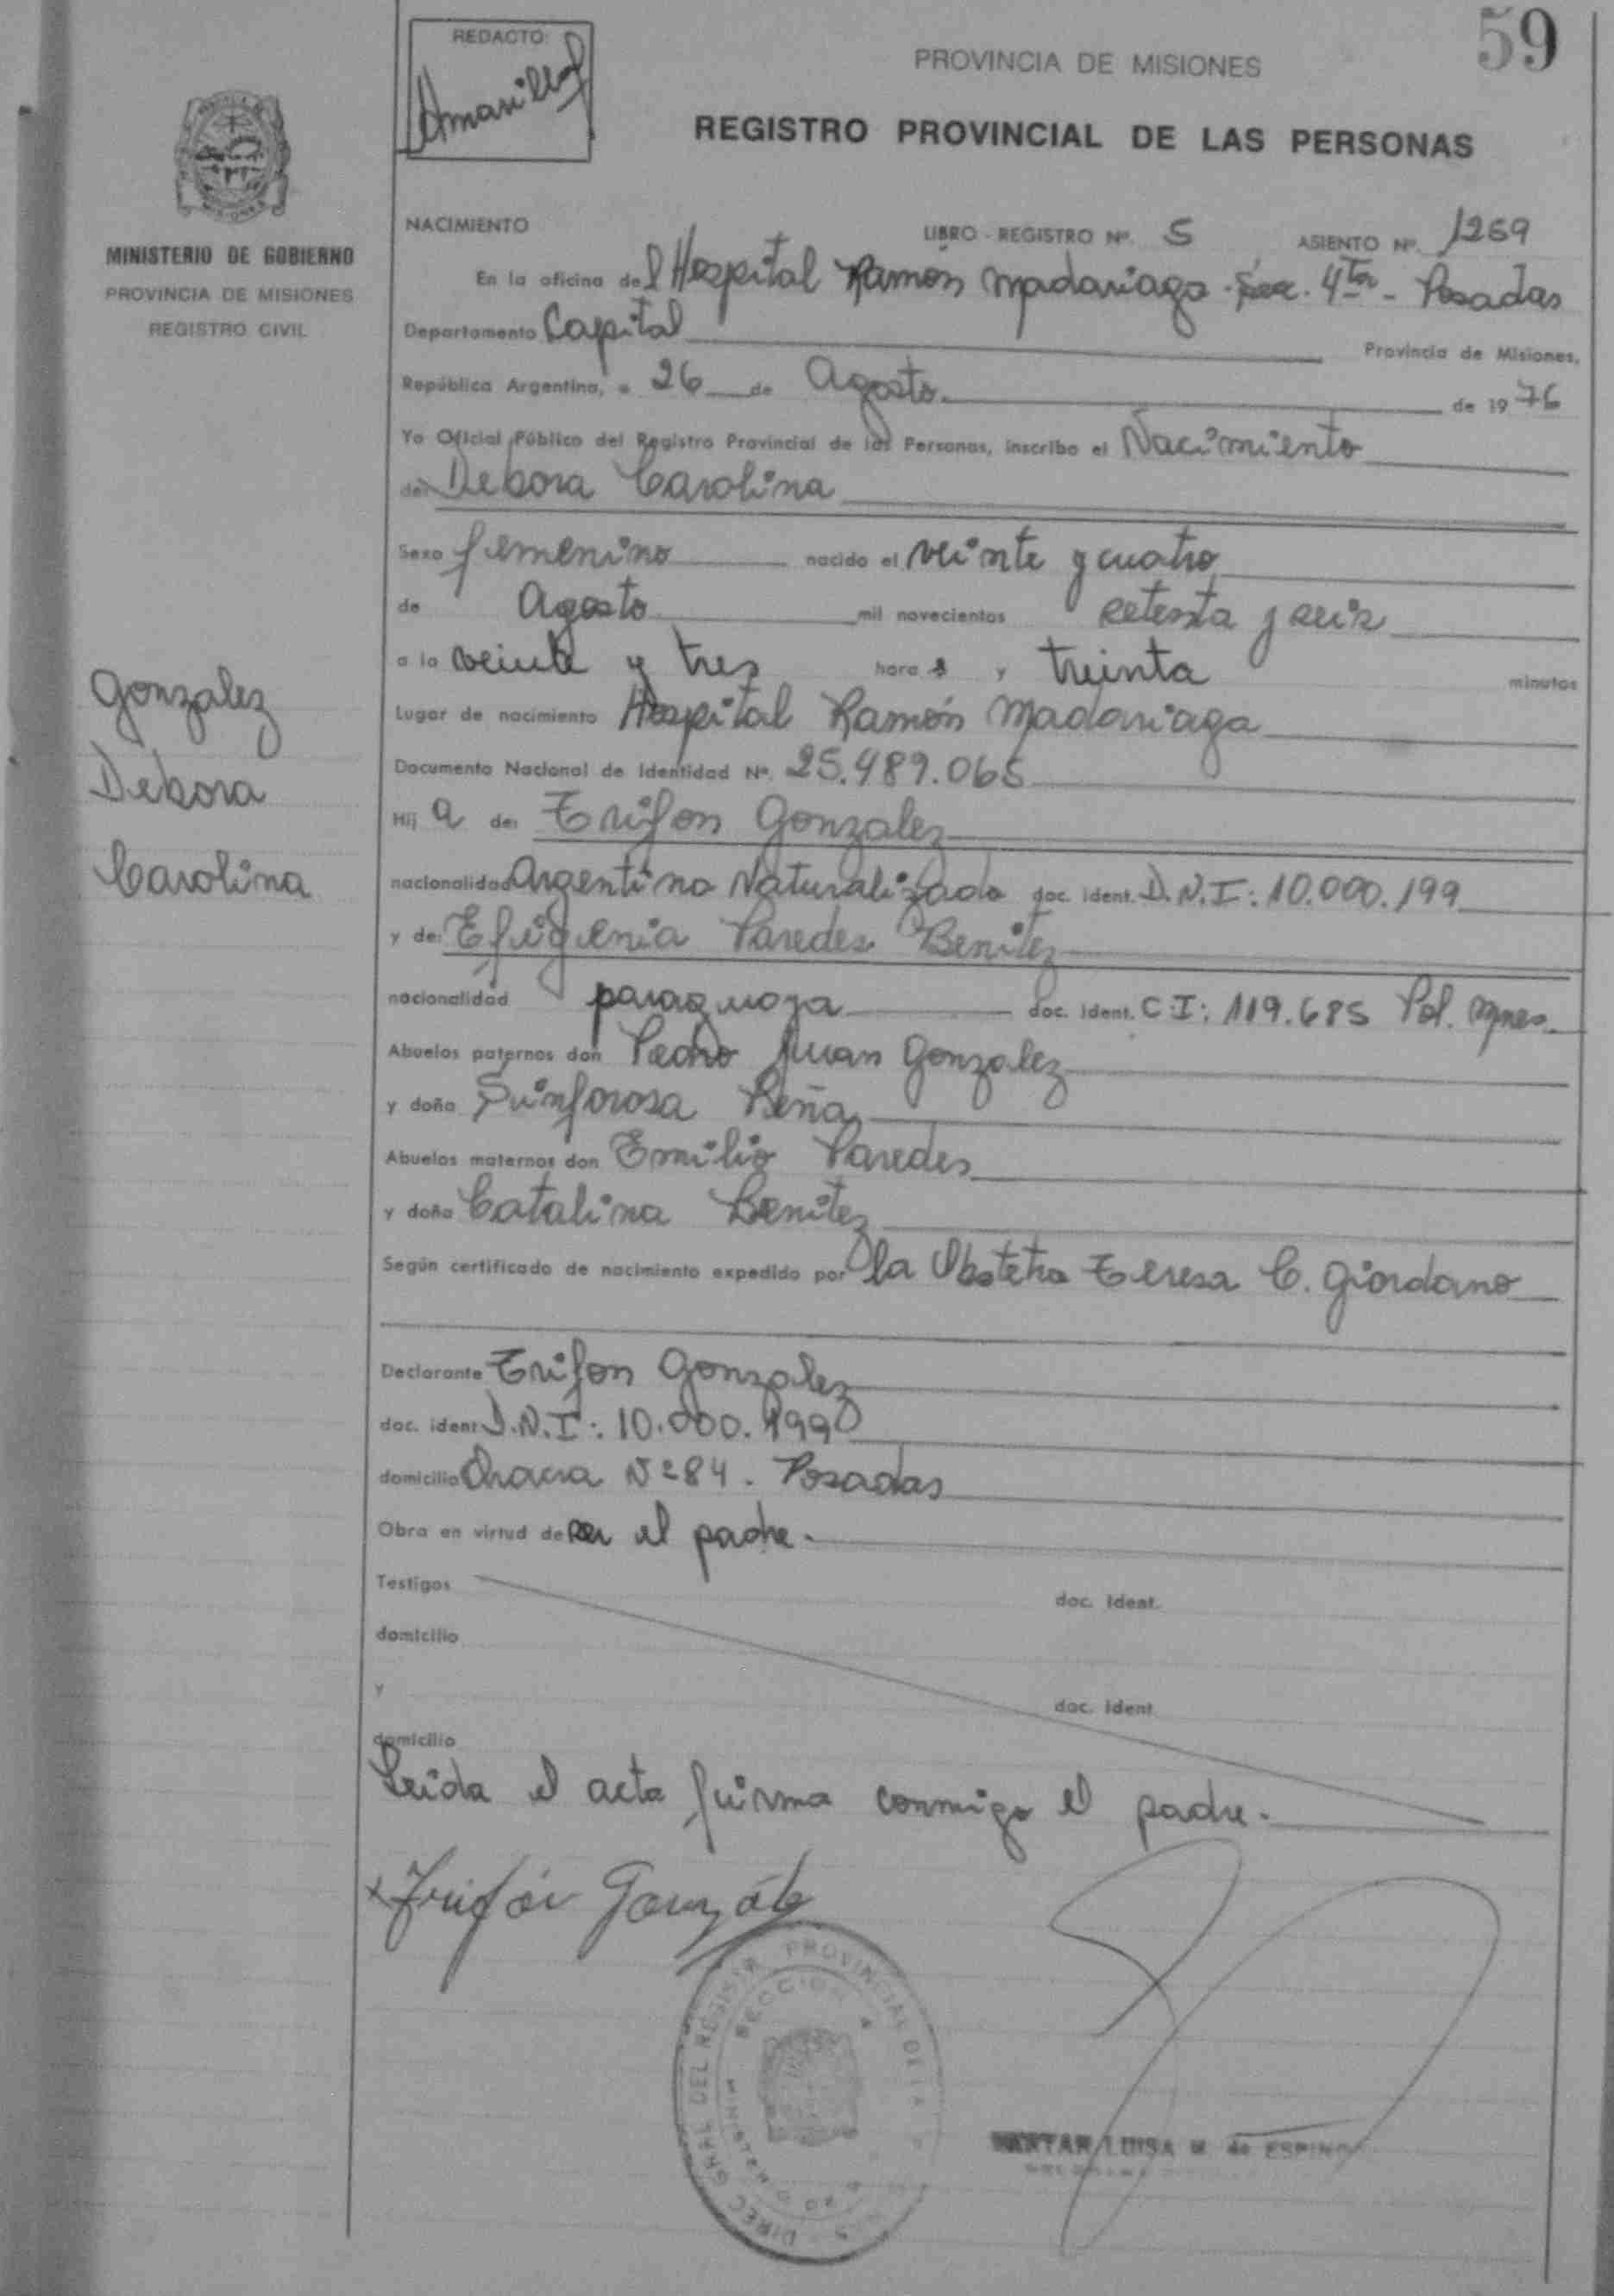 59
REDACTO:
Amarilla
PROVINCIA DE MISIONES
REGISTRO PROVINCIAL DE LAS PERSONAS
MINISTERIO DE GOBIERNO
PROVINCIA DE MISIONES
REGISTRO CIVIL
NACIMIENTO LIBRO - REGISTRO Nº. 5 ASIENTO Nº. 1269
En la oficina del Hospital Ramón Madariaga - Sec. 4ta - Posadas
Departamento Capital Provincia de Misiones,
República Argentina, a 26 de Agosto de 1976
Yo Oficial Público del Registro Provincial de las Personas, inscribo el Nacimiento
de: Debora Carolina
Sexo femenino nacido el veinte y cuatro
de Agosto mil novecientos setenta y seis
a la veinte y tres hora s y treinta minutos
Lugar de nacimiento Hospital Ramón Madariaga
Documento Nacional de Identidad Nº. 25.489.065
Hij a de: Trifon Gonzalez
nacionalidad Argentino Naturalizado doc. ident. D.N.I: 10.000.199
y de: Efigenia Paredes Benitez
nacionalidad paraguaya doc. ident. C.I: 119.685 Pol. Mnes.
Abuelos paternos don Pedro Juan Gonzalez
y doña Sinforosa Peña
Abuelos maternos don Emilio Paredes
y doña Catalina Benitez
Según certificado de nacimiento expedido por la Obstetra Teresa C. Giordano
Declarante Trifon Gonzalez
doc. ident D.N.I: 10.000.199
domicilio Chacra Nº 84. Posadas
Obra en virtud de ser el padre.
Testigos doc. ident.
domicilio
y doc. ident
domicilio
Leida el acta firma conmigo el padre.
Gonzalez
Debora
Carolina
x Trifón González
DIREC GRAL DEL REGISTR PROVINCIAL DE LA
SECCION 4
LUISA M de ESPINO